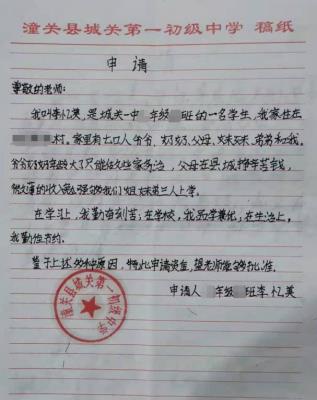 潼关县城关第一初级中学 稿纸
申请
尊敬的老师:
我叫李忆美,是城关一中 年级 班的一名学生,我家住在
村。家里有七口人爷爷、奶奶、父母、妹妹、弟弟和我。
爷爷奶奶年龄大了只能在家务活,父母在县城挣辛苦钱,
微薄的收入勉强够我们姐妹弟三人上学。
在学习上,我勤奋刻苦;在学校,我品学兼优;在生活上,
我勤俭节约。
鉴于上述多种原因,特此申请资金,望老师能够批准。
申请人 年级 班李忆美
潼关县城关第一初级中学